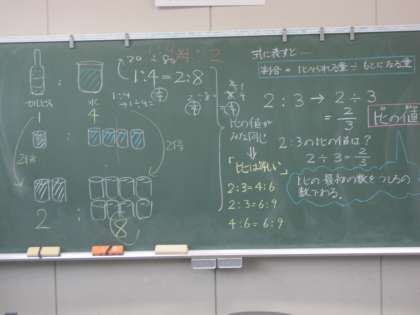 1:4=2:8
カルピス
水
1
:
4
2倍
2倍
2 : 8
比の値が
みな同じ
「比は等しい」
2:3=4:6
2:3=6:9
4:6=6:9
式に表すと…
割合 = 比べられる量 ÷ もとになる量
2:3 → 2÷3
= 2/3
比の値
2:3の比の値は?
2÷3=2/3
比の最初の数をうしろの
数でわる。